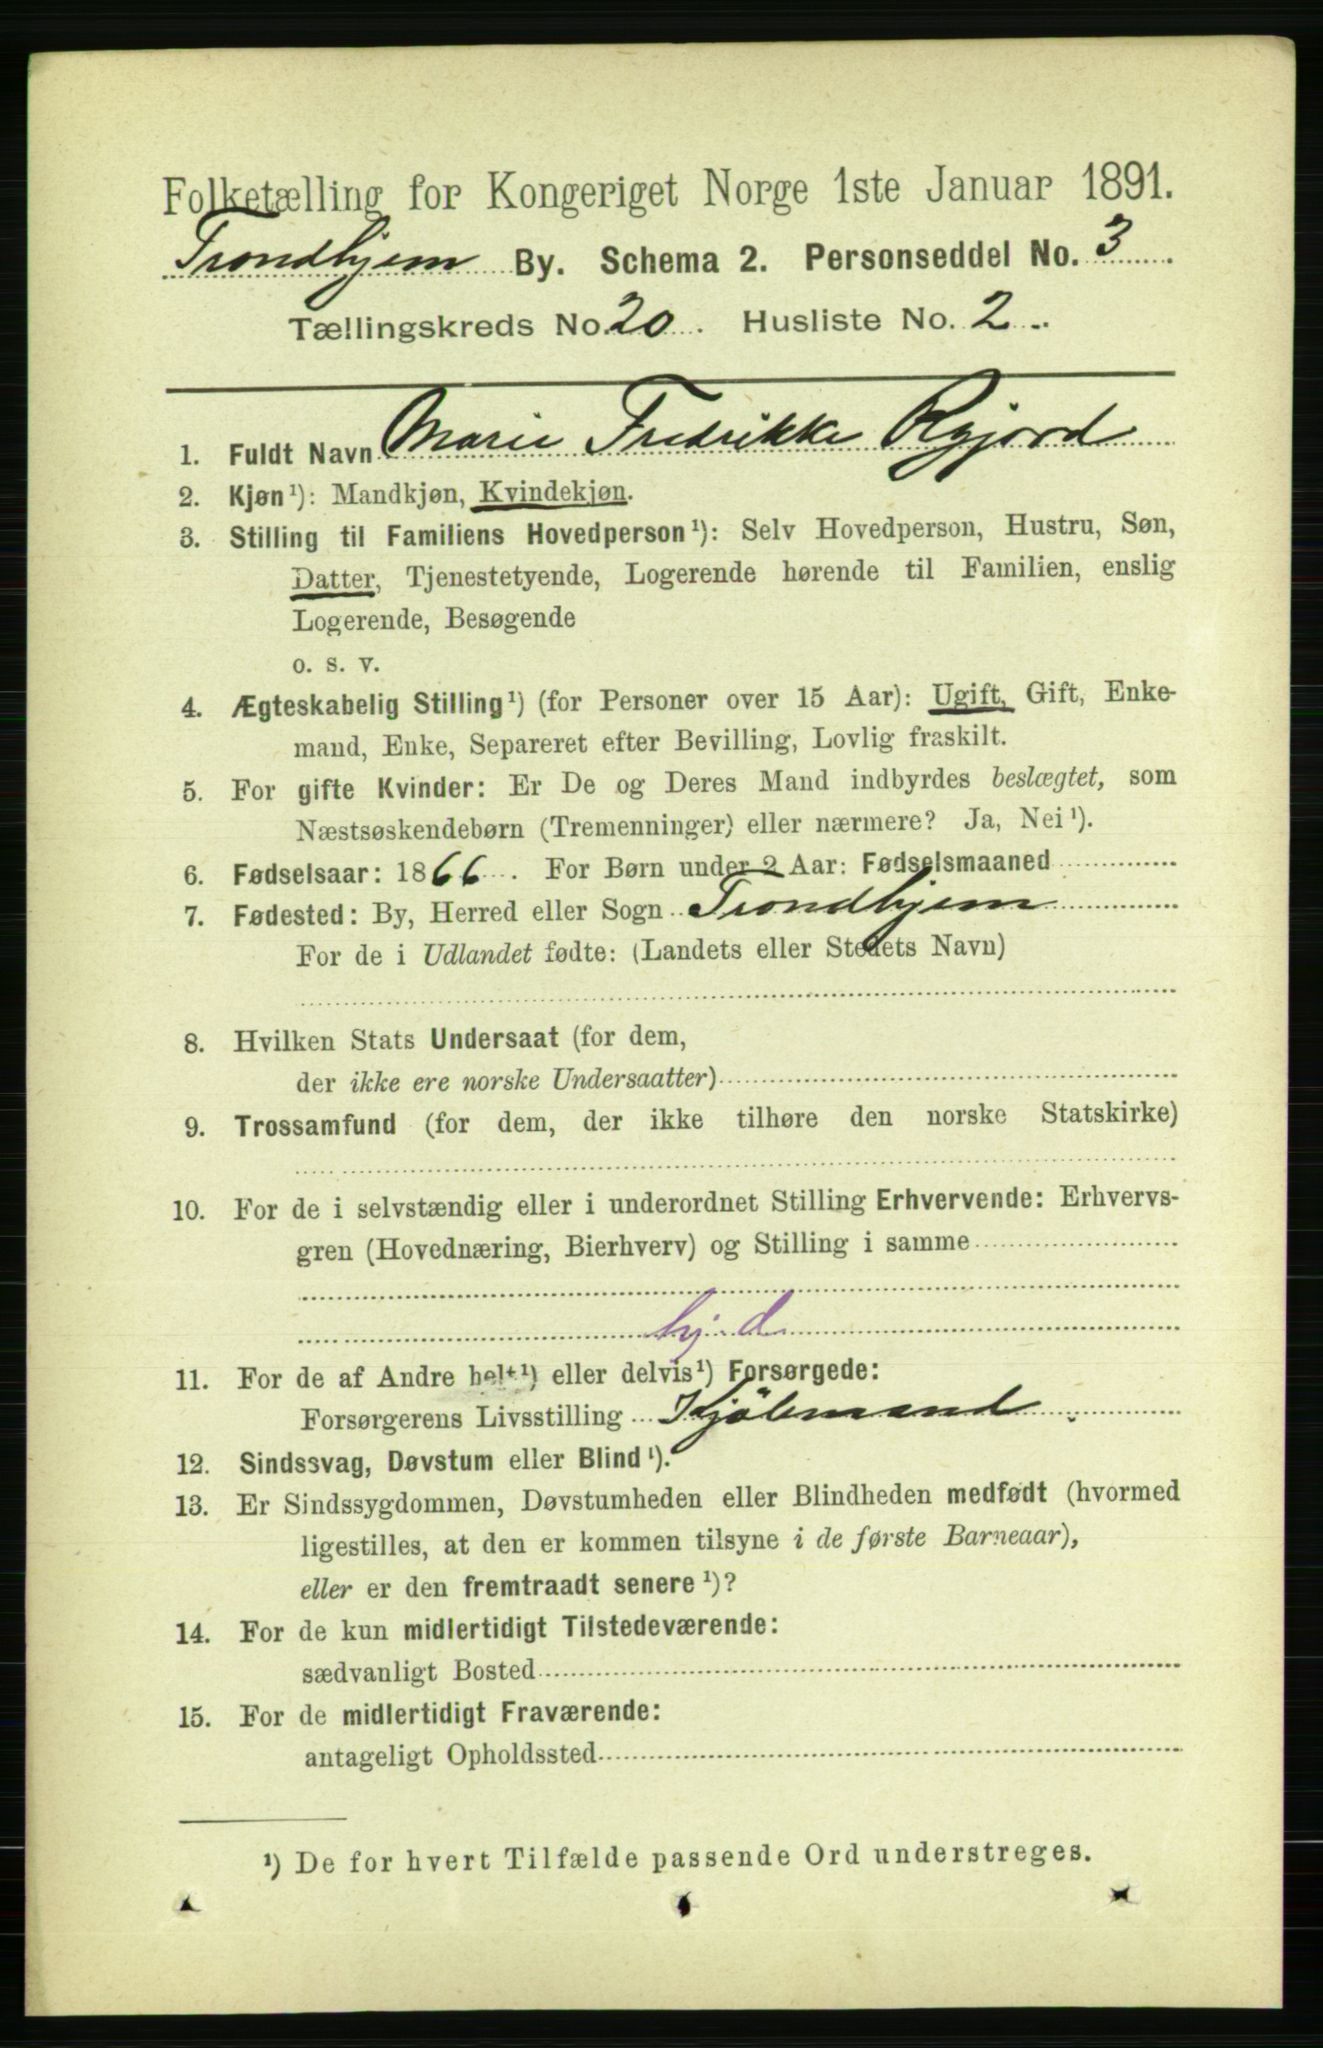 Folketælling for Kongeriget Norge 1ste Januar 1891.
Trondhjem By. Schema 2. Personseddel No. 3
Tællingskreds No. 20. Husliste No. 2
1. Fuldt Navn Marie Fredrikke Rgjord
2. Kjøn¹): Mandkjøn, Kvindekjøn.
3. Stilling til Familiens Hovedperson¹): Selv Hovedperson, Hustru, Søn,
Datter, Tjenestetyende, Logerende hørende til Familien, enslig
Logerende, Besøgende
o. s. v.
4. Ægteskabelig Stilling¹) (for Personer over 15 Aar): Ugift, Gift, Enke-
mand, Enke, Separeret efter Bevilling, Lovlig fraskilt.
5. For gifte Kvinder: Er De og Deres Mand indbyrdes beslægtet, som
Næstsøskendebørn (Tremenninger) eller nærmere? Ja, Nei¹).
6. Fødselsaar: 1866. For Børn under 2 Aar: Fødselsmaaned
7. Fødested: By, Herred eller Sogn Trondhjem
For de i Udlandet fødte: (Landets eller Stedets Navn)
8. Hvilken Stats Undersaat (for dem,
der ikke ere norske Undersaatter)
9. Trossamfund (for dem, der ikke tilhøre den norske Statskirke)
10. For de i selvstændig eller i underordnet Stilling Erhvervende: Erhvervs-
gren (Hovednæring, Bierhverv) og Stilling i samme
hj. d
11. For de af Andre helt¹) eller delvis¹) Forsørgede:
Forsørgerens Livsstilling Kjöbmand
12. Sindssvag, Døvstum eller Blind¹).
13. Er Sindssygdommen, Døvstumheden eller Blindheden medfødt (hvormed
ligestilles, at den er kommen tilsyne i de første Barneaar),
eller er den fremtraadt senere¹)?
14. For de kun midlertidigt Tilstedeværende:
sædvanligt Bosted
15. For de midlertidigt Fraværende:
antageligt Opholdssted
¹) De for hvert Tilfælde passende Ord understreges.